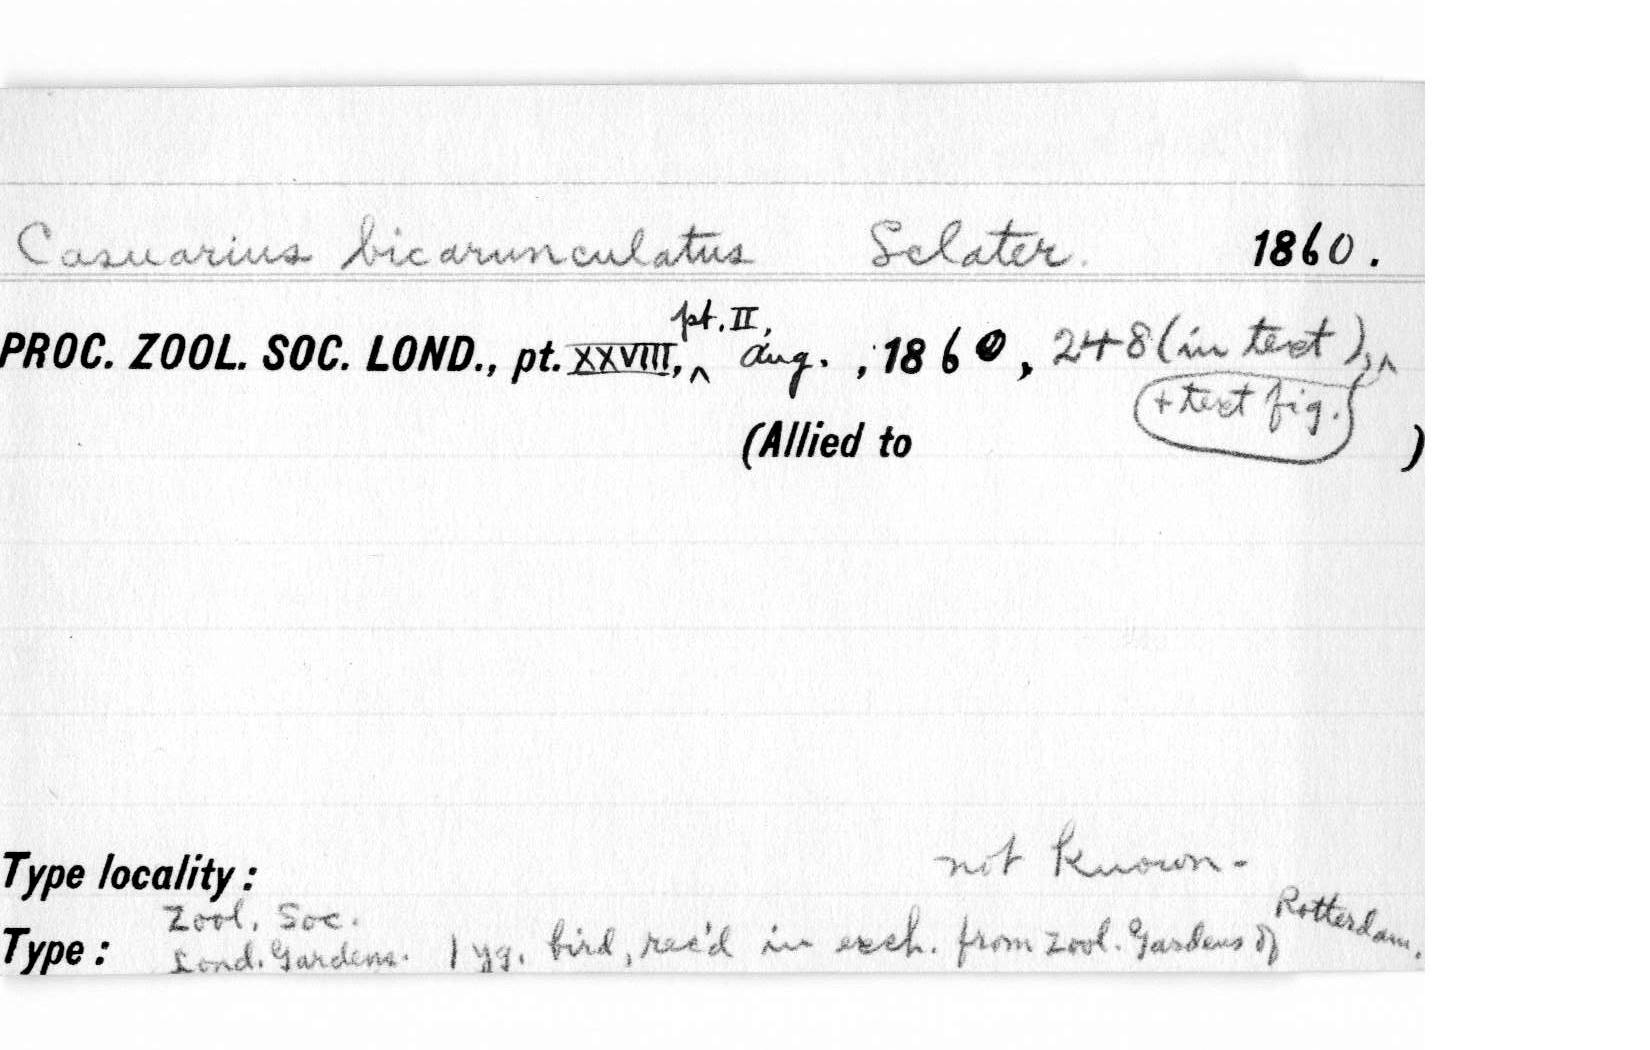 Casuarius bicarunculatus Sclater. 1860.
pt. II,
PROC. ZOOL. SOC. LOND., pt. XXVIII, ^ Aug. , 1860, 248 (in text), ^
+ text fig.
(Allied to )
Type locality: not known-
Zool. Soc. Rotterdam.
Type: Lond. Gardens. 1 yg. bird, rec'd in exch. from Zool. Gardens of